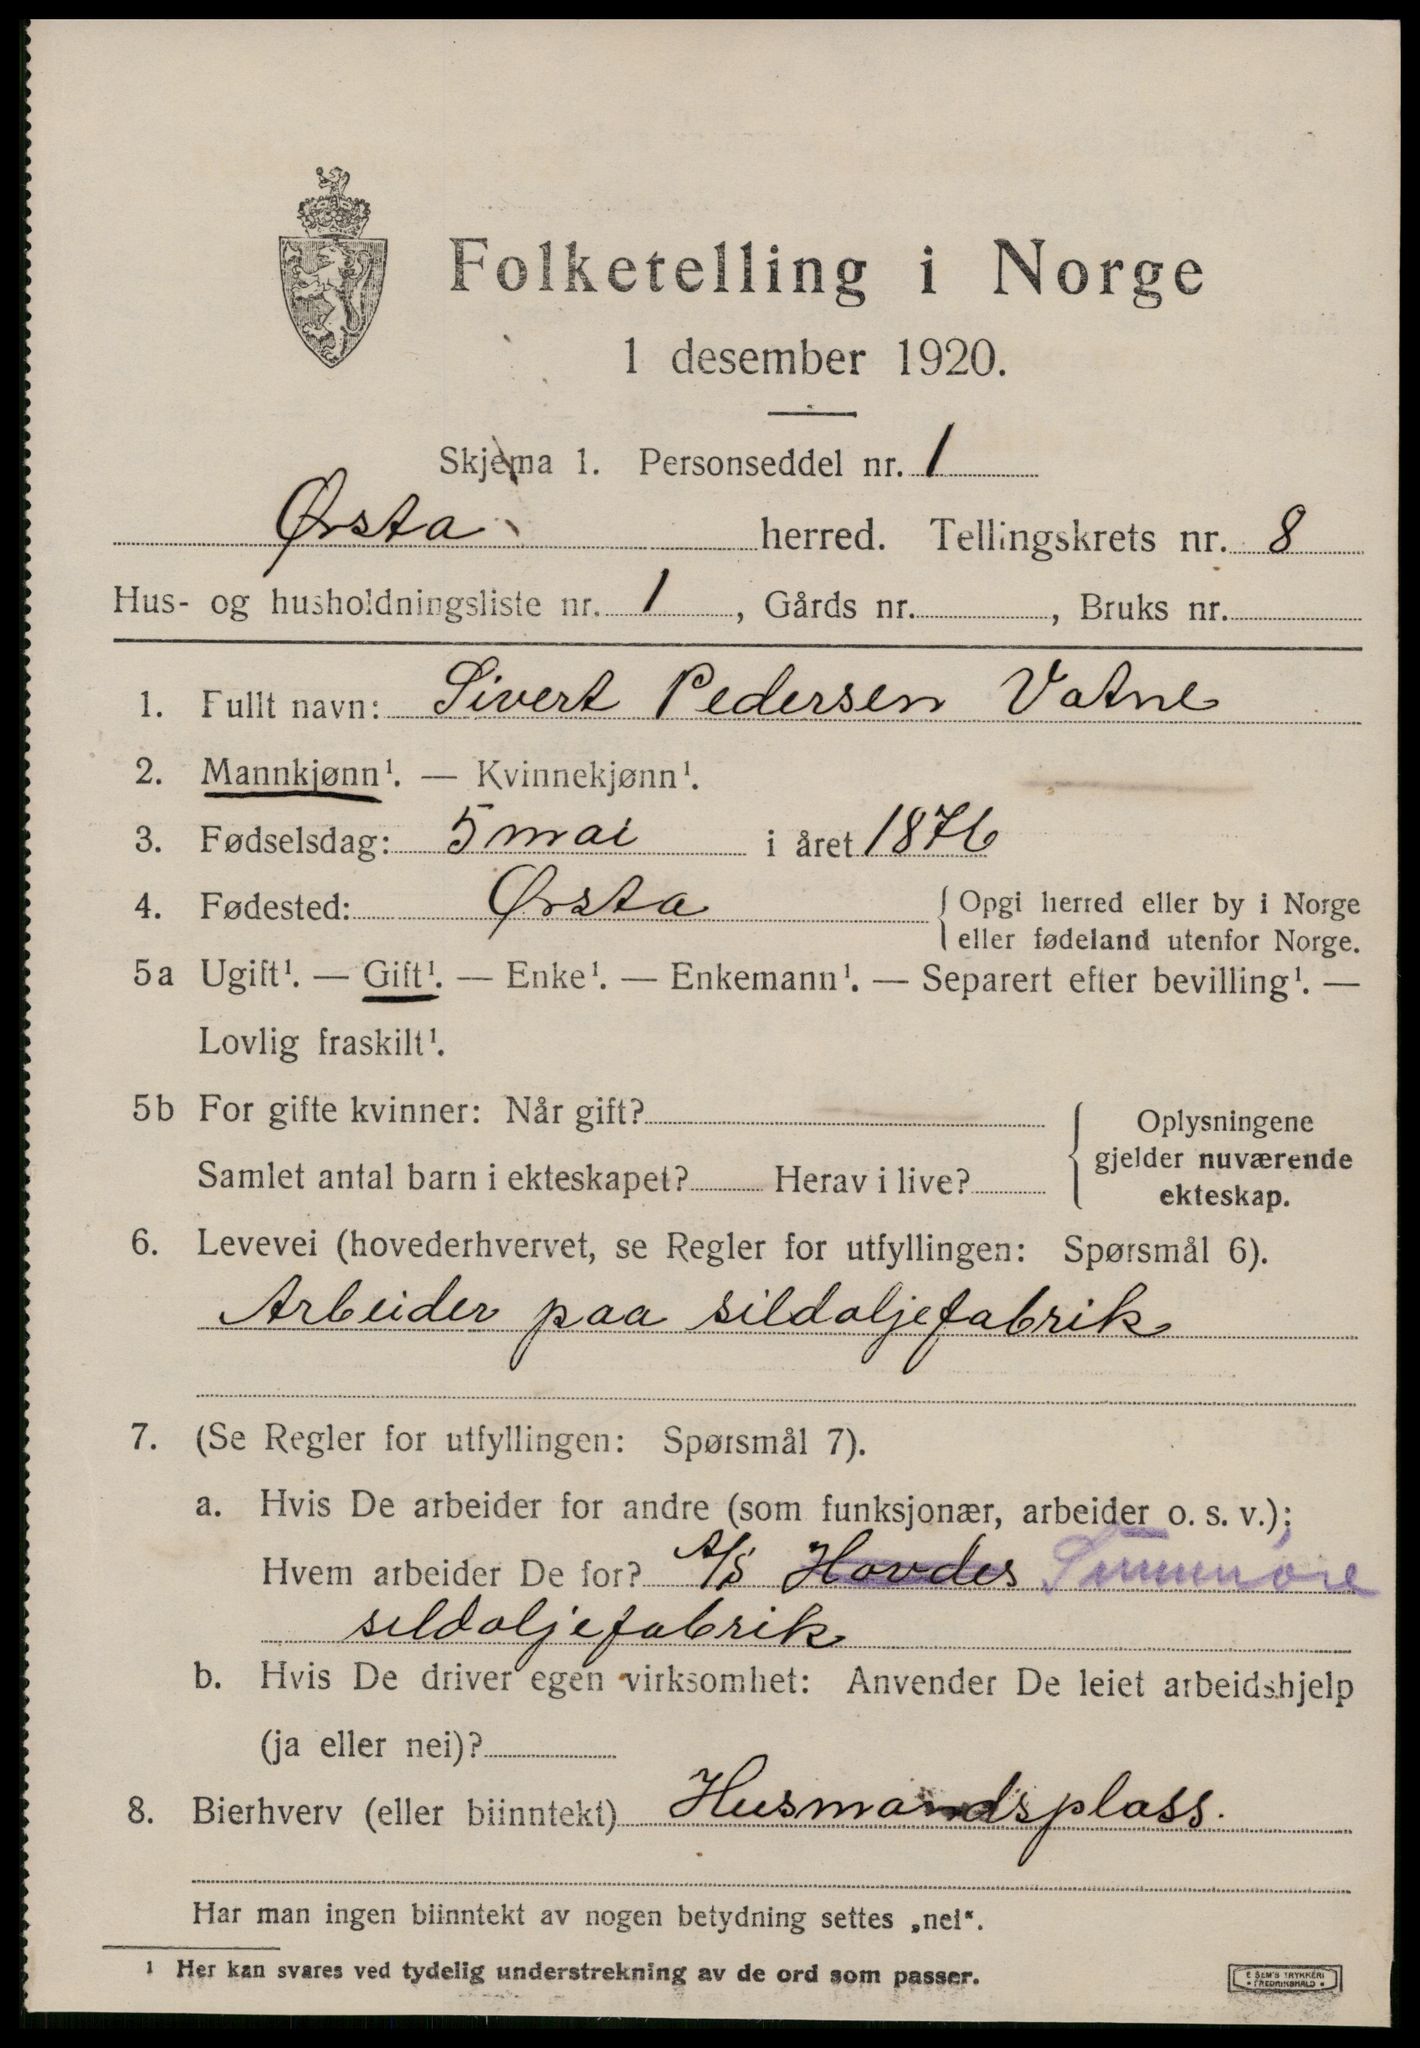 Folketelling i Norge
1 desember 1920.
Skjema 1. Personseddel nr. 1
Ørsta herred. Tellingskrets nr. 8
Hus- og husholdningsliste nr. 1, Gårds nr. , Bruks nr.
1. Fullt navn: Sivert Pedersen Vatne
2. Mannkjønn¹. — Kvinnekjønn¹.
3. Fødselsdag: 5 mai i året 1876
4. Fødested: Ørsta { Opgi herred eller by i Norge
eller fødeland utenfor Norge.
5a Ugift¹. — Gift¹. — Enke¹. — Enkemann¹. — Separert efter bevilling¹. —
Lovlig fraskilt¹.
5b For gifte kvinner: Når gift? { Oplysningene
gjelder nuværende
Samlet antal barn i ekteskapet? Herav i live?
ekteskap.
6. Levevei (hovederhvervet, se Regler for utfyllingen: Spørsmål 6).
Arbeider paa sildoljefabrik
7. (Se Regler for utfyllingen: Spørsmål 7).
a. Hvis De arbeider for andre (som funksjonær, arbeider o. s. v.);
Hvem arbeider De for? A/S Hovdes Sunnmøre
sildoljefabrik
b. Hvis De driver egen virksomhet: Anvender De leiet arbeidshjelp
(ja eller nei)?
8. Bierhverv (eller biinntekt) Husmandsplass.
Har man ingen biinntekt av nogen betydning settes „nei“.
¹ Her kan svares ved tydelig understrekning av de ord som passer.
E SEM'S TRYKKERI
• FREDRIKSHALD •